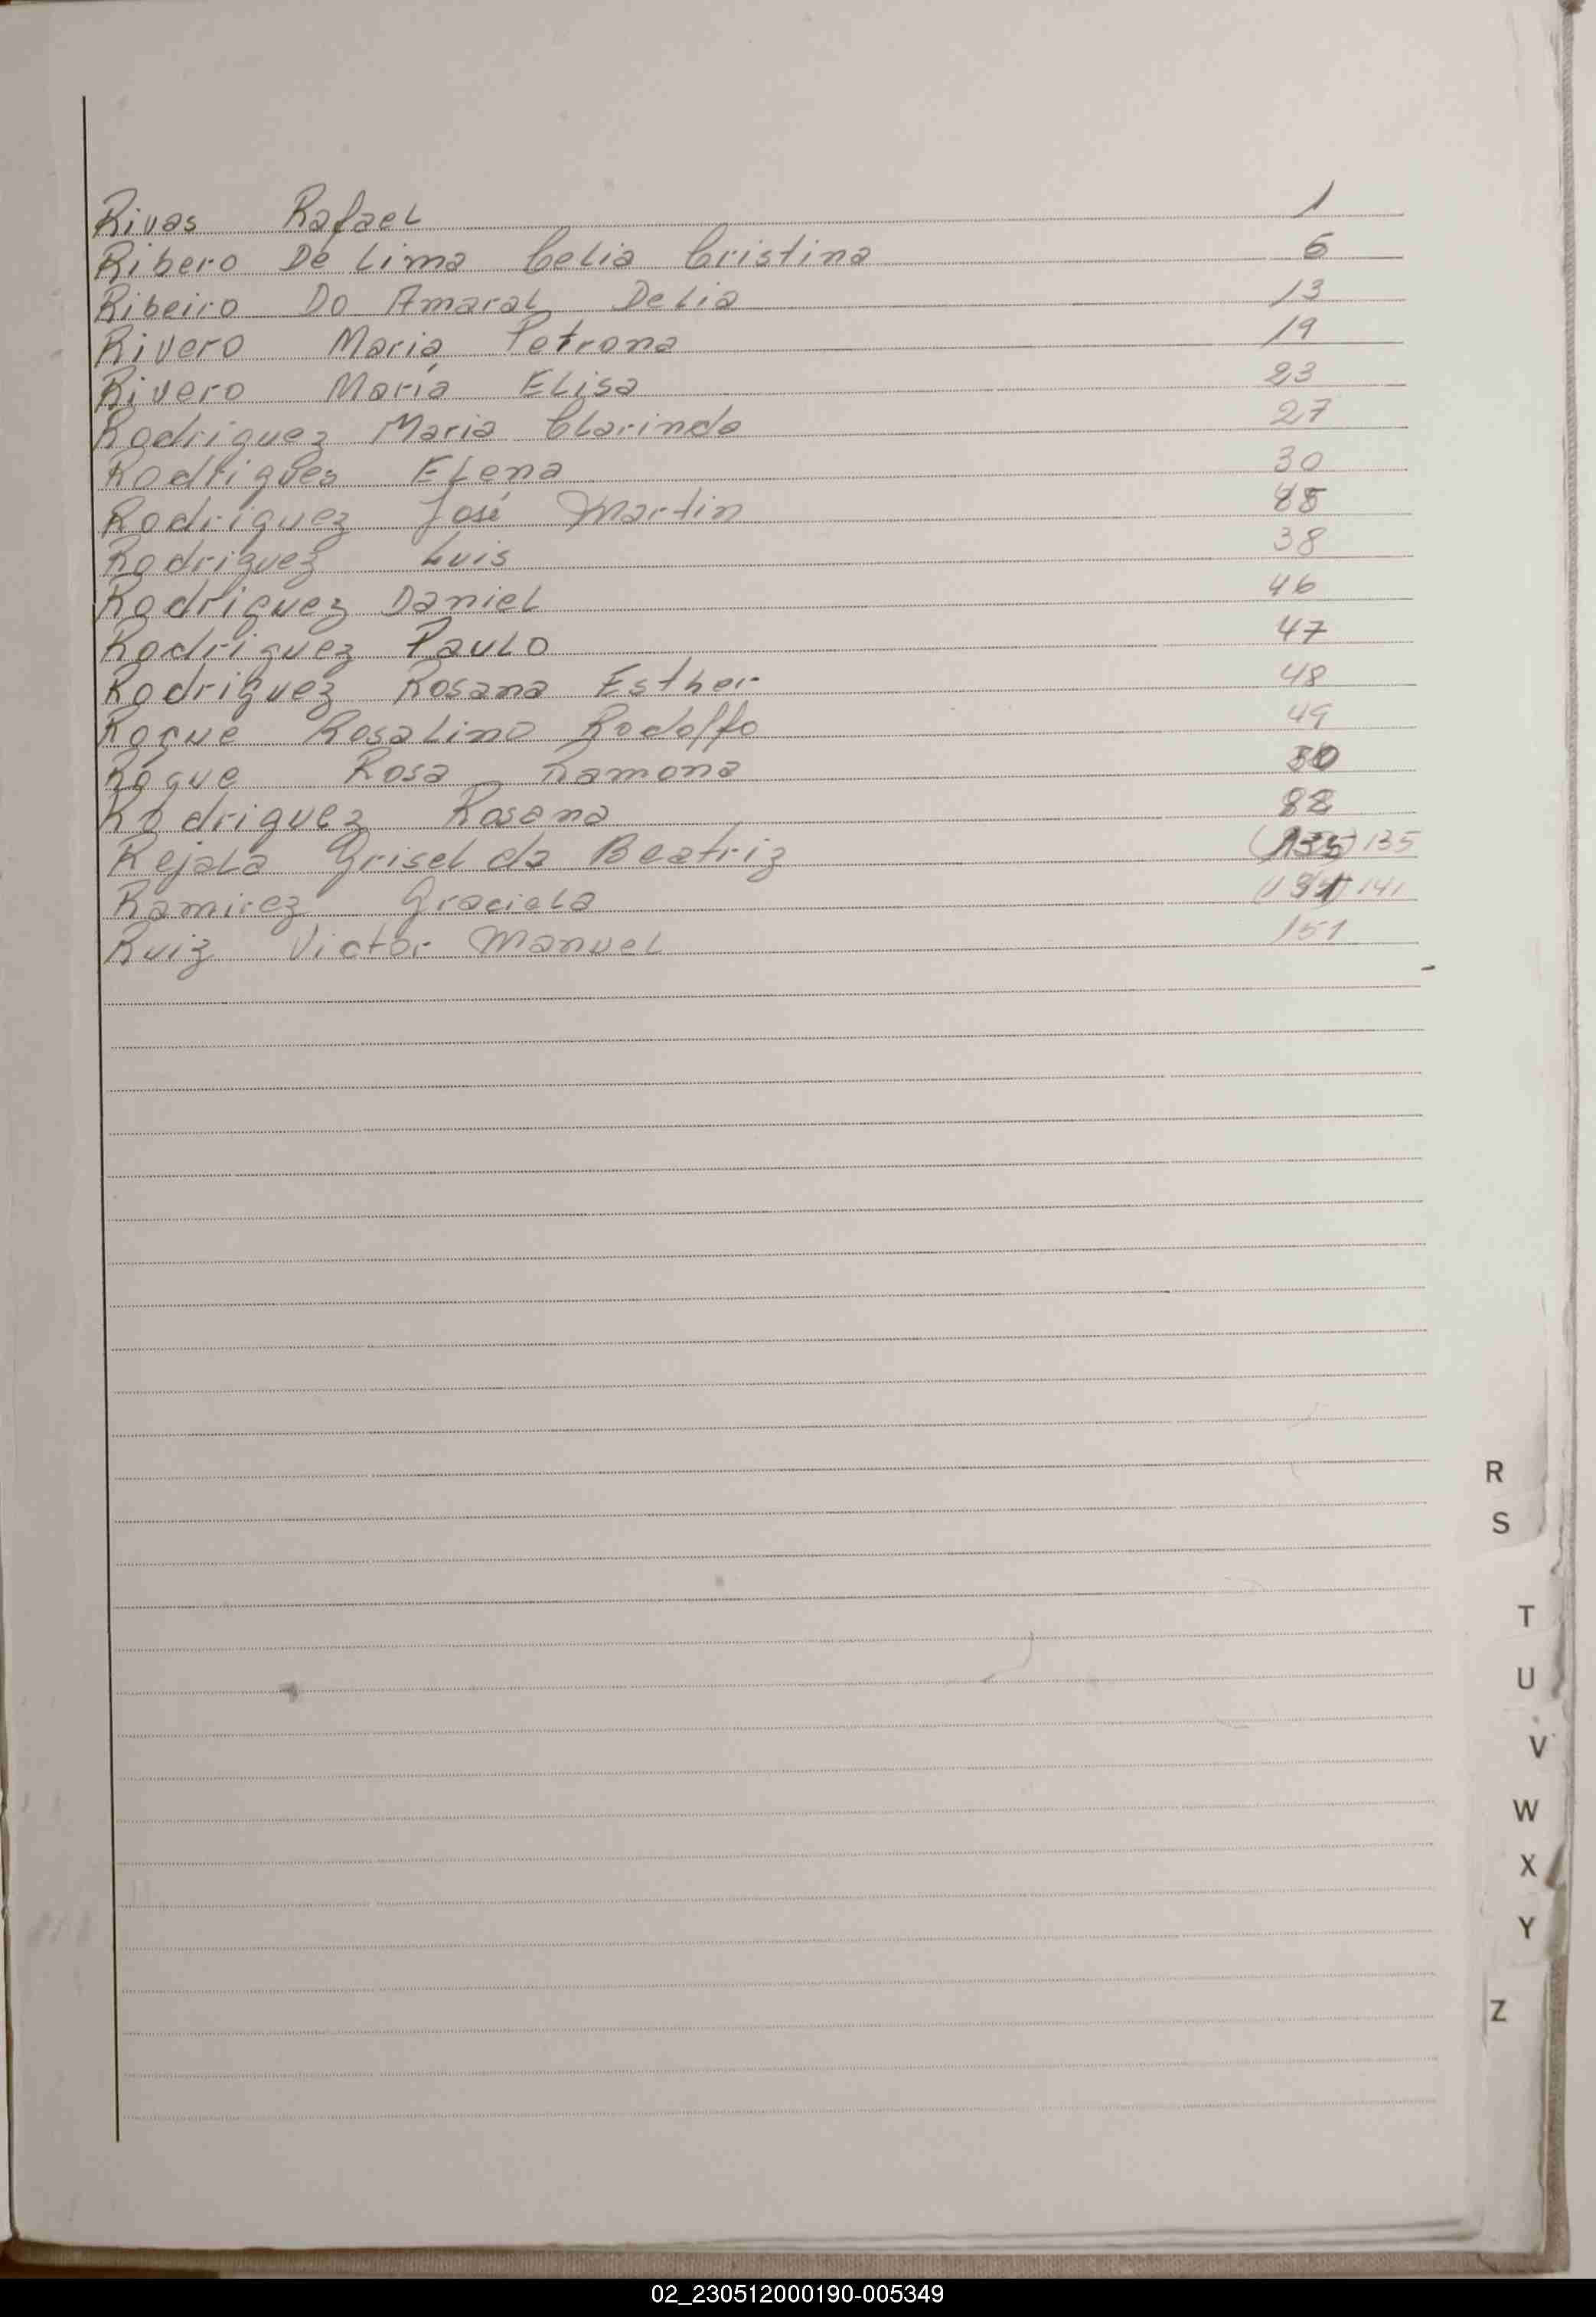 Rivas Rafael 1
Ribero De Lima Celia Cristina 6
Ribeiro Do Amaral Delia 13
Rivero Maria Petrona 19
Rivero María Elisa 23
Rodriguez Maria Clarinda 27
Rodrigues Elena 30
Rodriguez José Martin
Rodriguez Luis 38
Rodriguez Daniel 46
Rodriguez Paulo 47
Rodriguez Rosana Esther 48
Roque Rosalino Rodolfo 49
Roque Rosa Ramona
Rodriguez Rosana 82
Rejala Griselda Beatriz 135
Ramirez Graciela 141
Ruiz Victor Manuel 151
R
S
T
U
V
W
X
Y
Z
02_230512000190-005349